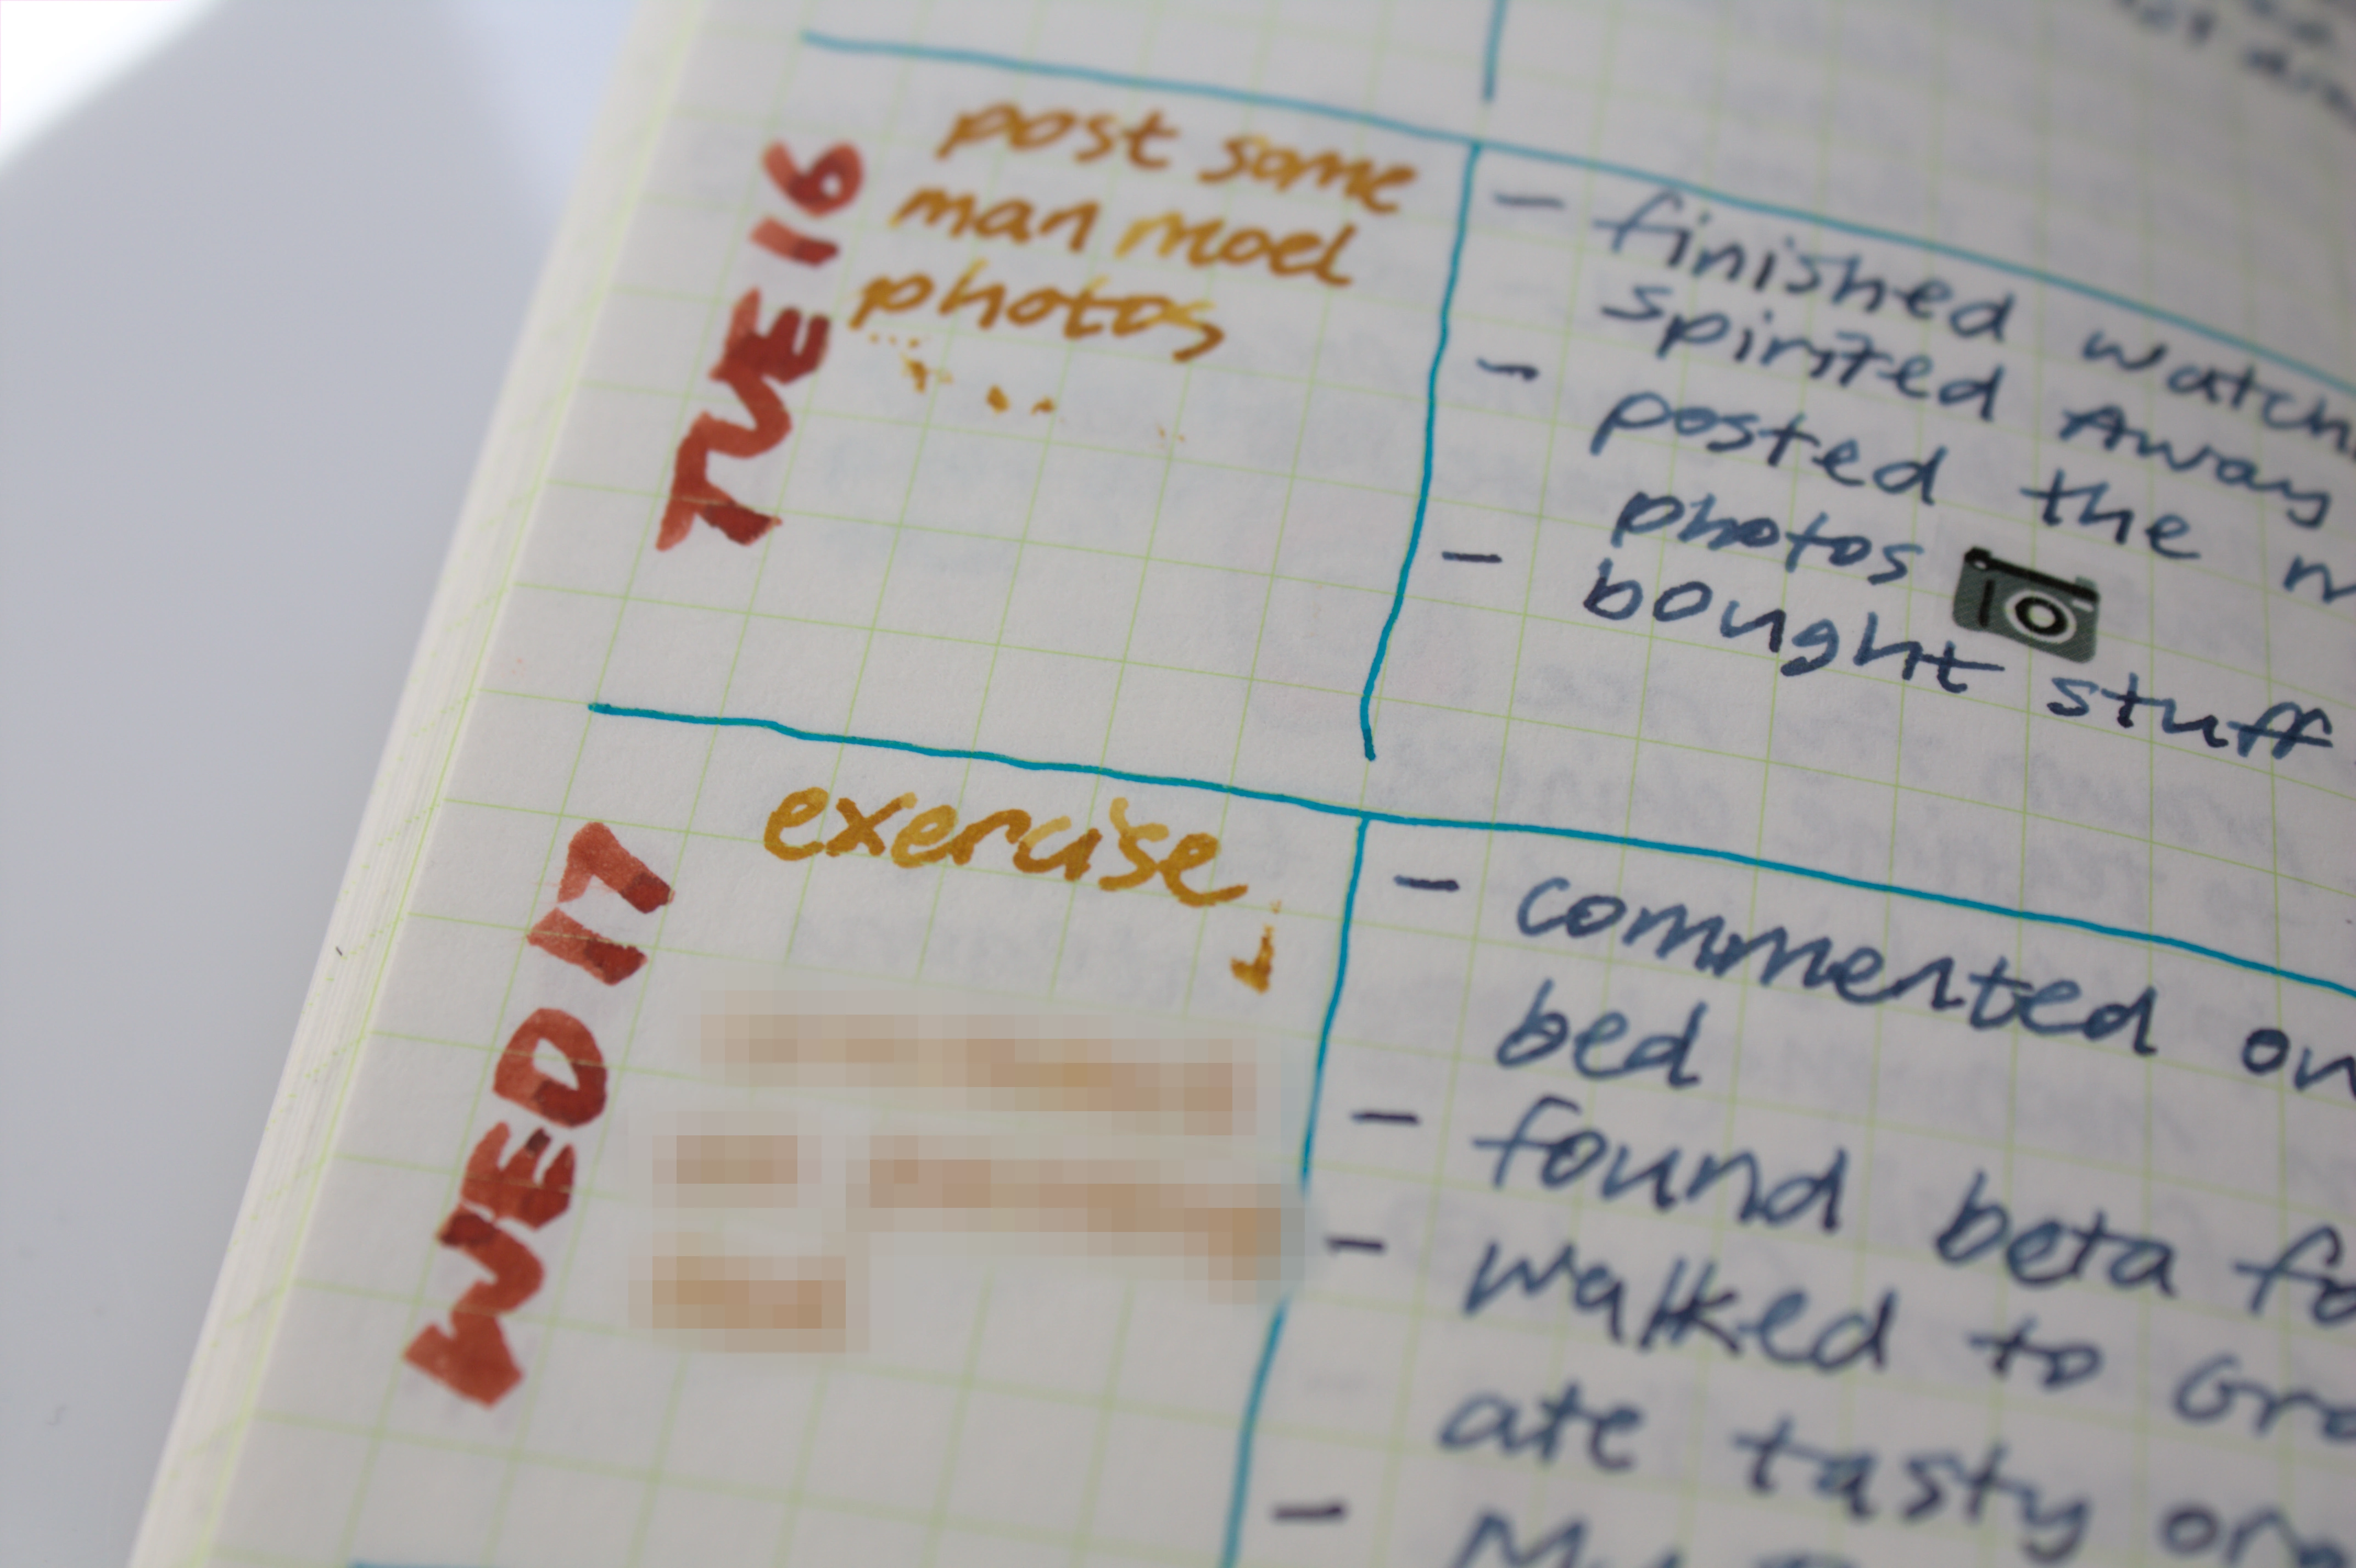 TUE 16
post some
man moel
photos
- finished
spirited Away
- posted the
photos
- bought stuff
WED 17
exercise
- commented
bed
- found beta
- walked to
ate tasty
- My